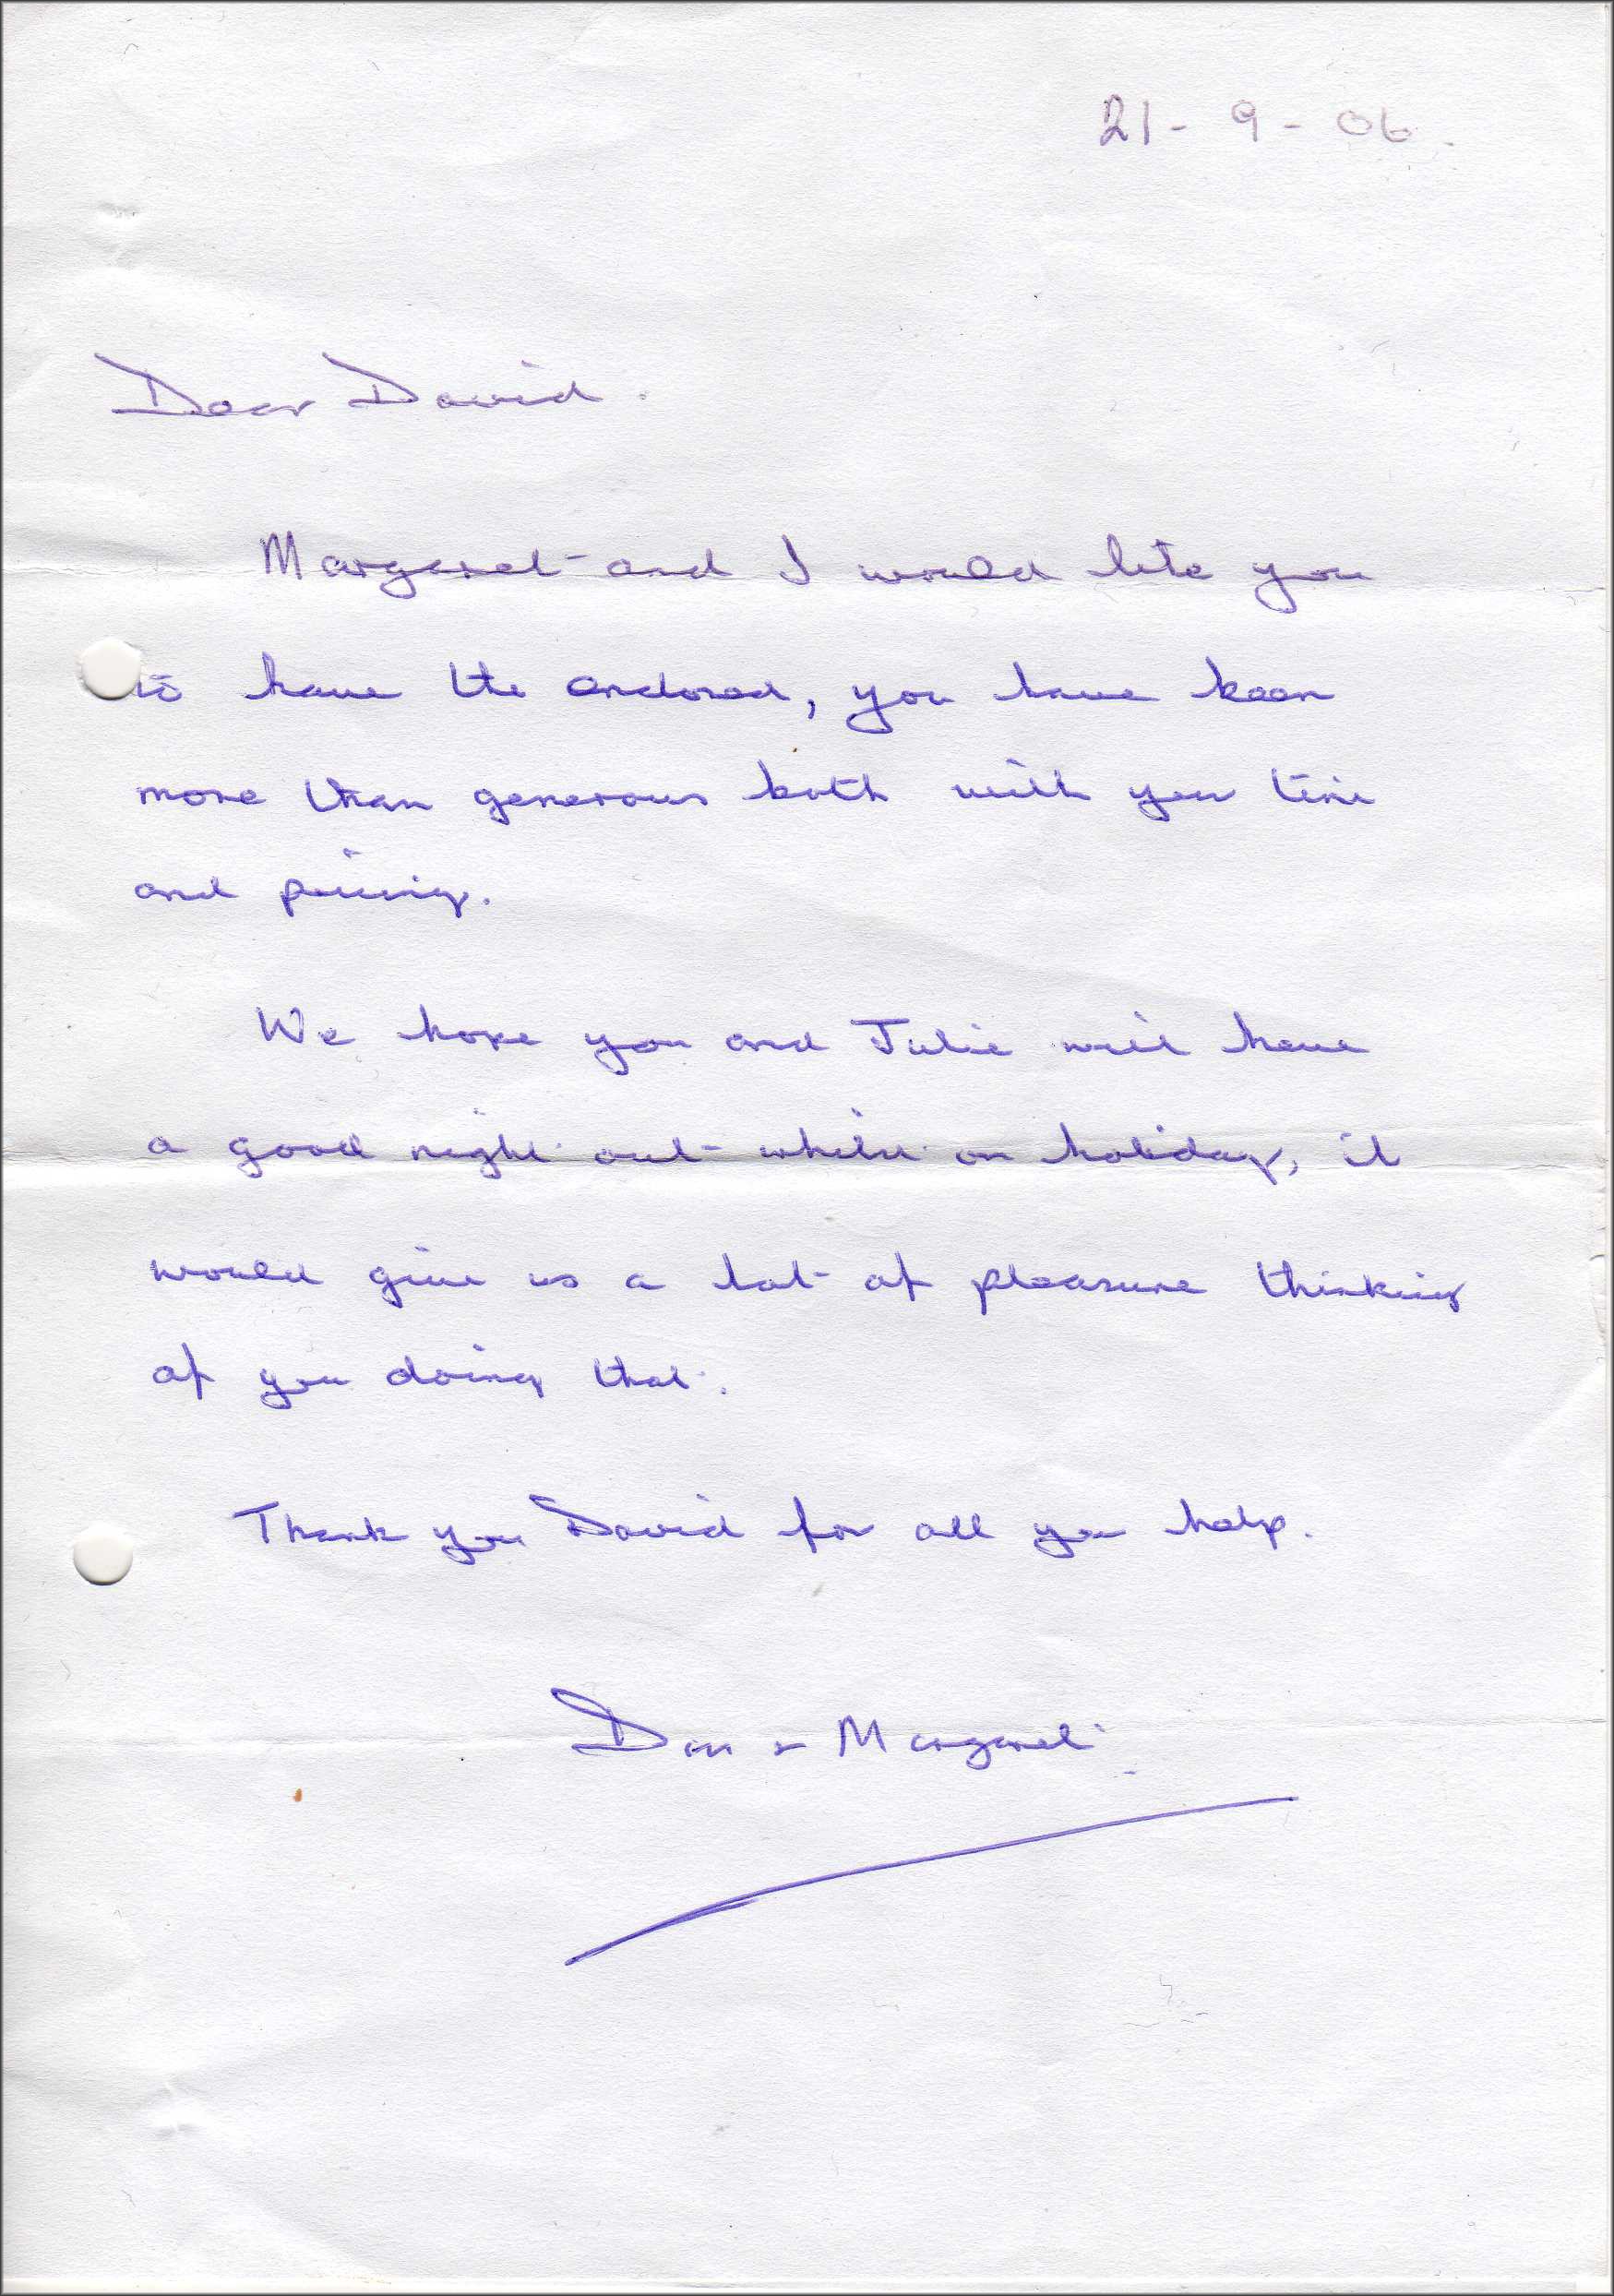 21 - 9 - 06.
Dear David.
Margaret and I would like you
to have the enclosed, you have been
more than generous both with you time
and pricing.
We hope you and Julie will have
a good night out whilst on holiday, it
would give us a lot of pleasure thinking
of you doing that.
Thank you David for all you help.
& Margaret.